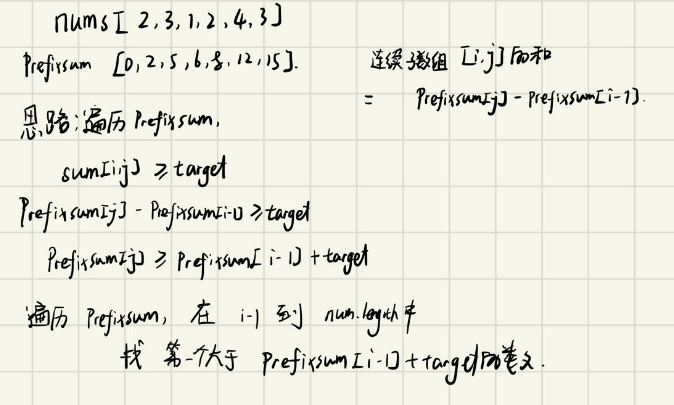 nums[ 2,3,1,2,4,3]
Prefixsum [0,2,5,6,8,12,15].
连续子数组 [i,j] 的和
= Prefixsum[j] - Prefixsum[i-1].
思路:遍历 Prefixsum,
sum[i,j] ≥ target
Prefixsum[j] - Prefixsum[i-1] ≥ target
Prefixsum[j] ≥ Prefixsum[i-1] + target
遍历 Prefixsum, 在 i-1 到 num.length中
找 第一个大于 Prefixsum[i-1]+target的